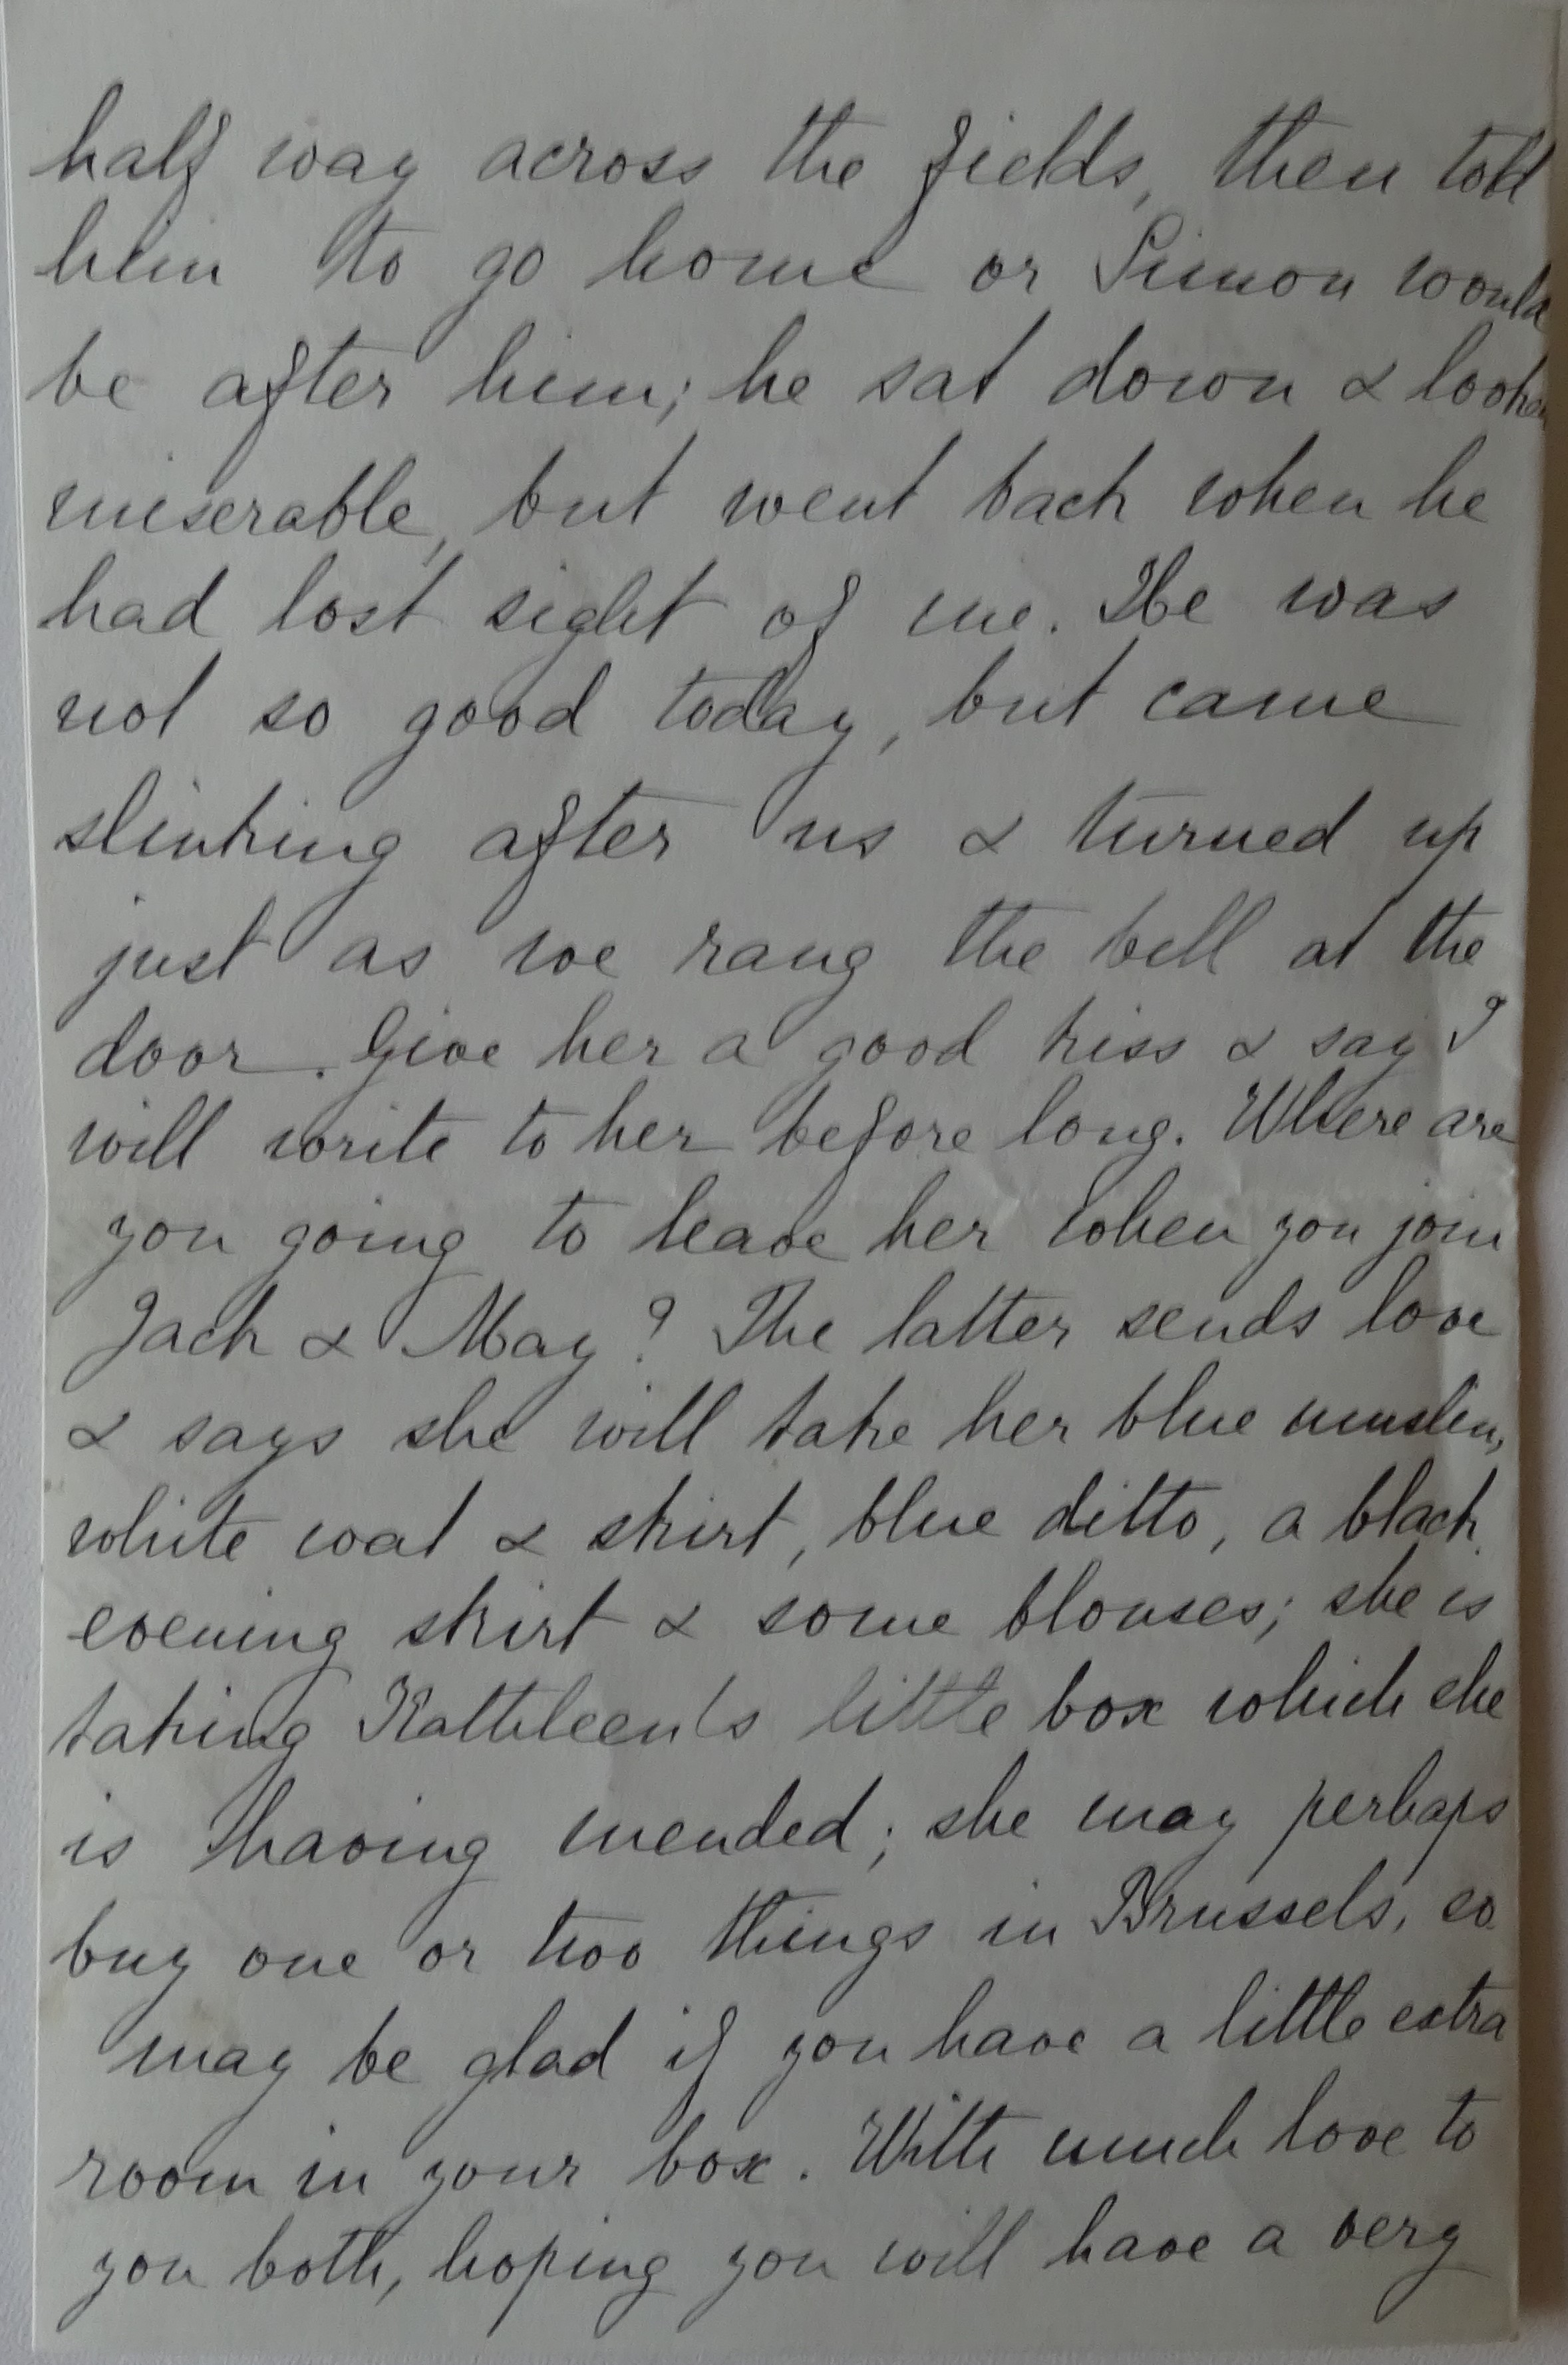 half way across the fields, then told
him to go home or Simon would
be after him; he sat down & looked
miserable, but went back when he
had lost sight of me. He was
not so good today, but came
slinking after us & turned up
just as we rang the bell at the
door. Give her a good kiss & say I
will write to her before long. Where are
you going to leave her when you join
Jack & May? The latter sends love
& says she will take her blue muslin,
white coat & skirt, blue ditto, a black
evening skirt & some blouses; she is
taking Kathleen's little box which she
is having mended; she may perhaps
buy one or two things in Brussels, so
may be glad if you have a little extra
room in your box. With much love to
you both, hoping you will have a very